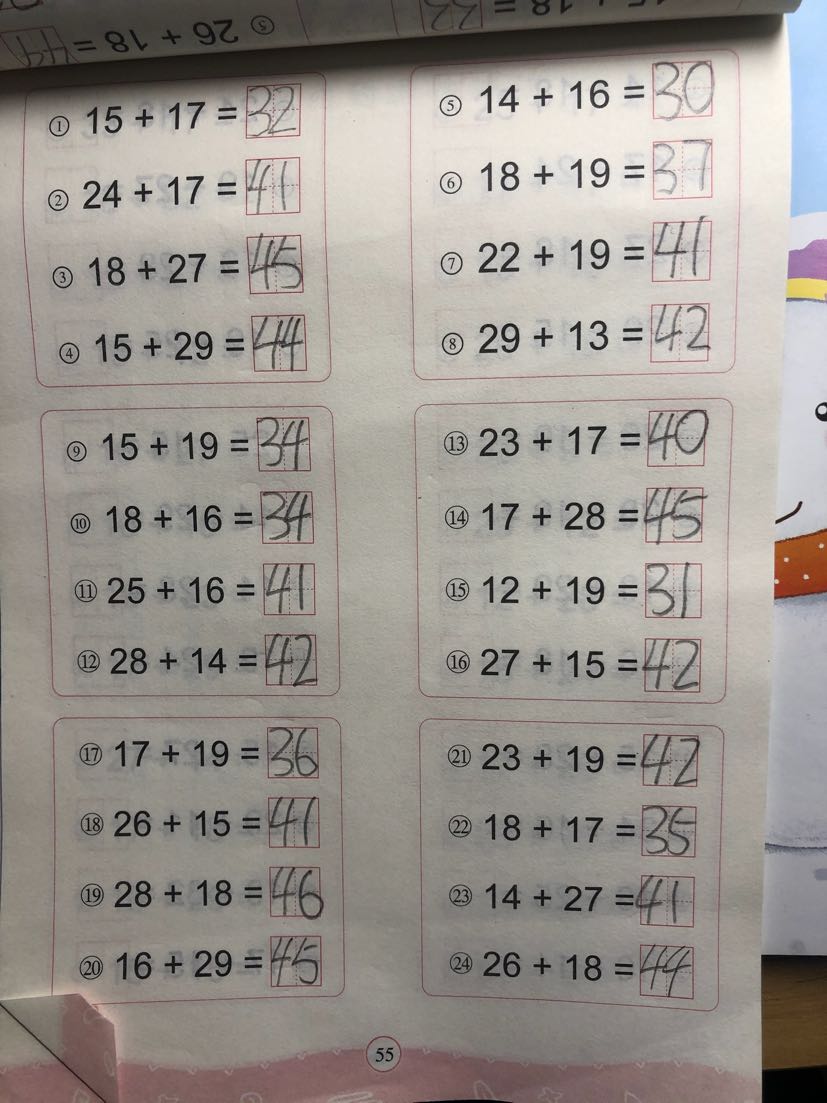 ⑤ 26 + 18 = 44
① 15 + 17 = 32
② 24 + 17 = 41
③ 18 + 27 = 45
④ 15 + 29 = 44
⑤ 14 + 16 = 30
⑥ 18 + 19 = 37
⑦ 22 + 19 = 41
⑧ 29 + 13 = 42
⑨ 15 + 19 = 34
⑩ 18 + 16 = 34
⑪ 25 + 16 = 41
⑫ 28 + 14 = 42
⑬ 23 + 17 = 40
⑭ 17 + 28 = 45
⑮ 12 + 19 = 31
⑯ 27 + 15 = 42
⑰ 17 + 19 = 36
⑱ 26 + 15 = 41
⑲ 28 + 18 = 46
⑳ 16 + 29 = 45
㉑ 23 + 19 = 42
㉒ 18 + 17 = 35
㉓ 14 + 27 = 41
㉔ 26 + 18 = 44
55